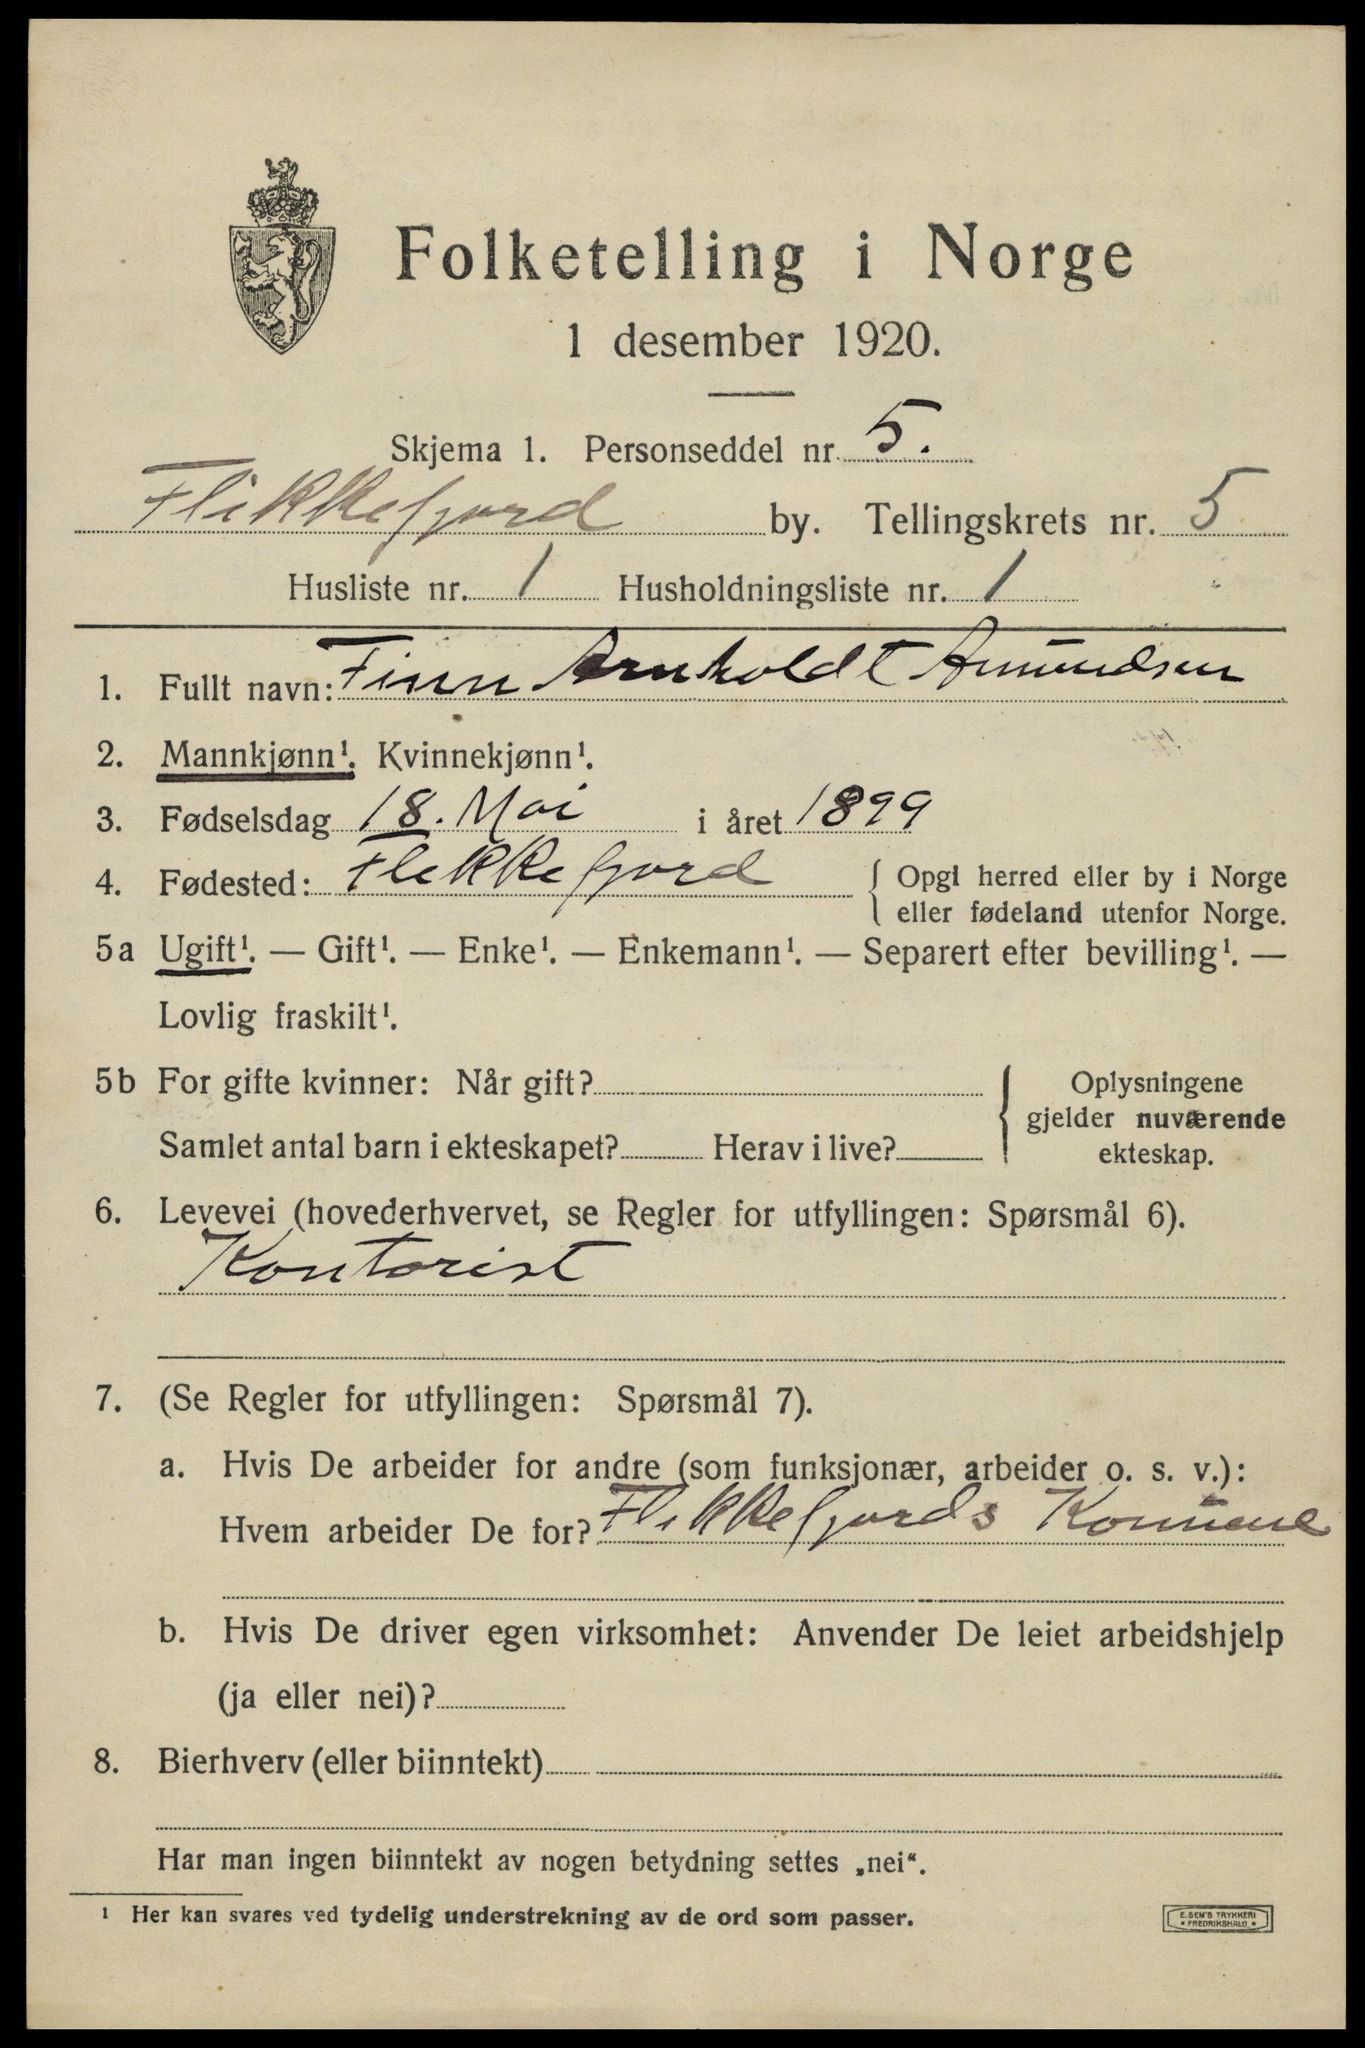 Folketelling i Norge
1 desember 1920.
Skjema 1. Personseddel nr. 5.
Flikkefjord by. Tellingskrets nr. 5
Husliste nr. 1 Husholdningsliste nr. 1
1. Fullt navn: Finn Arnholdt Amundsen
2. Mannkjønn¹. Kvinnekjønn¹.
3. Fødselsdag 18. Mai i året 1899
4. Fødested: Flekkefjord { Opgi herred eller by i Norge
eller fødeland utenfor Norge.
5a Ugift¹. — Gift¹. — Enke¹. — Enkemann¹. — Separert efter bevilling¹. —
Lovlig fraskilt¹.
5b For gifte kvinner: Når gift? { Oplysningene
gjelder nuværende
Samlet antal barn i ekteskapet? Herav i live? ekteskap.
6. Levevei (hovederhvervet, se Regler for utfyllingen: Spørsmål 6).
Kontorist
7. (Se Regler for utfyllingen: Spørsmål 7).
a. Hvis De arbeider for andre (som funksjonær, arbeider o. s. v.):
Hvem arbeider De for? Flikkefjords Komune
b. Hvis De driver egen virksomhet: Anvender De leiet arbeidshjelp
(ja eller nei)?
8. Bierhverv (eller biinntekt)
Har man ingen biinntekt av nogen betydning settes „nei“.
¹ Her kan svares ved tydelig understrekning av de ord som passer.
E. SEM'S TRYKKERI
* FREDRIKSHALD *